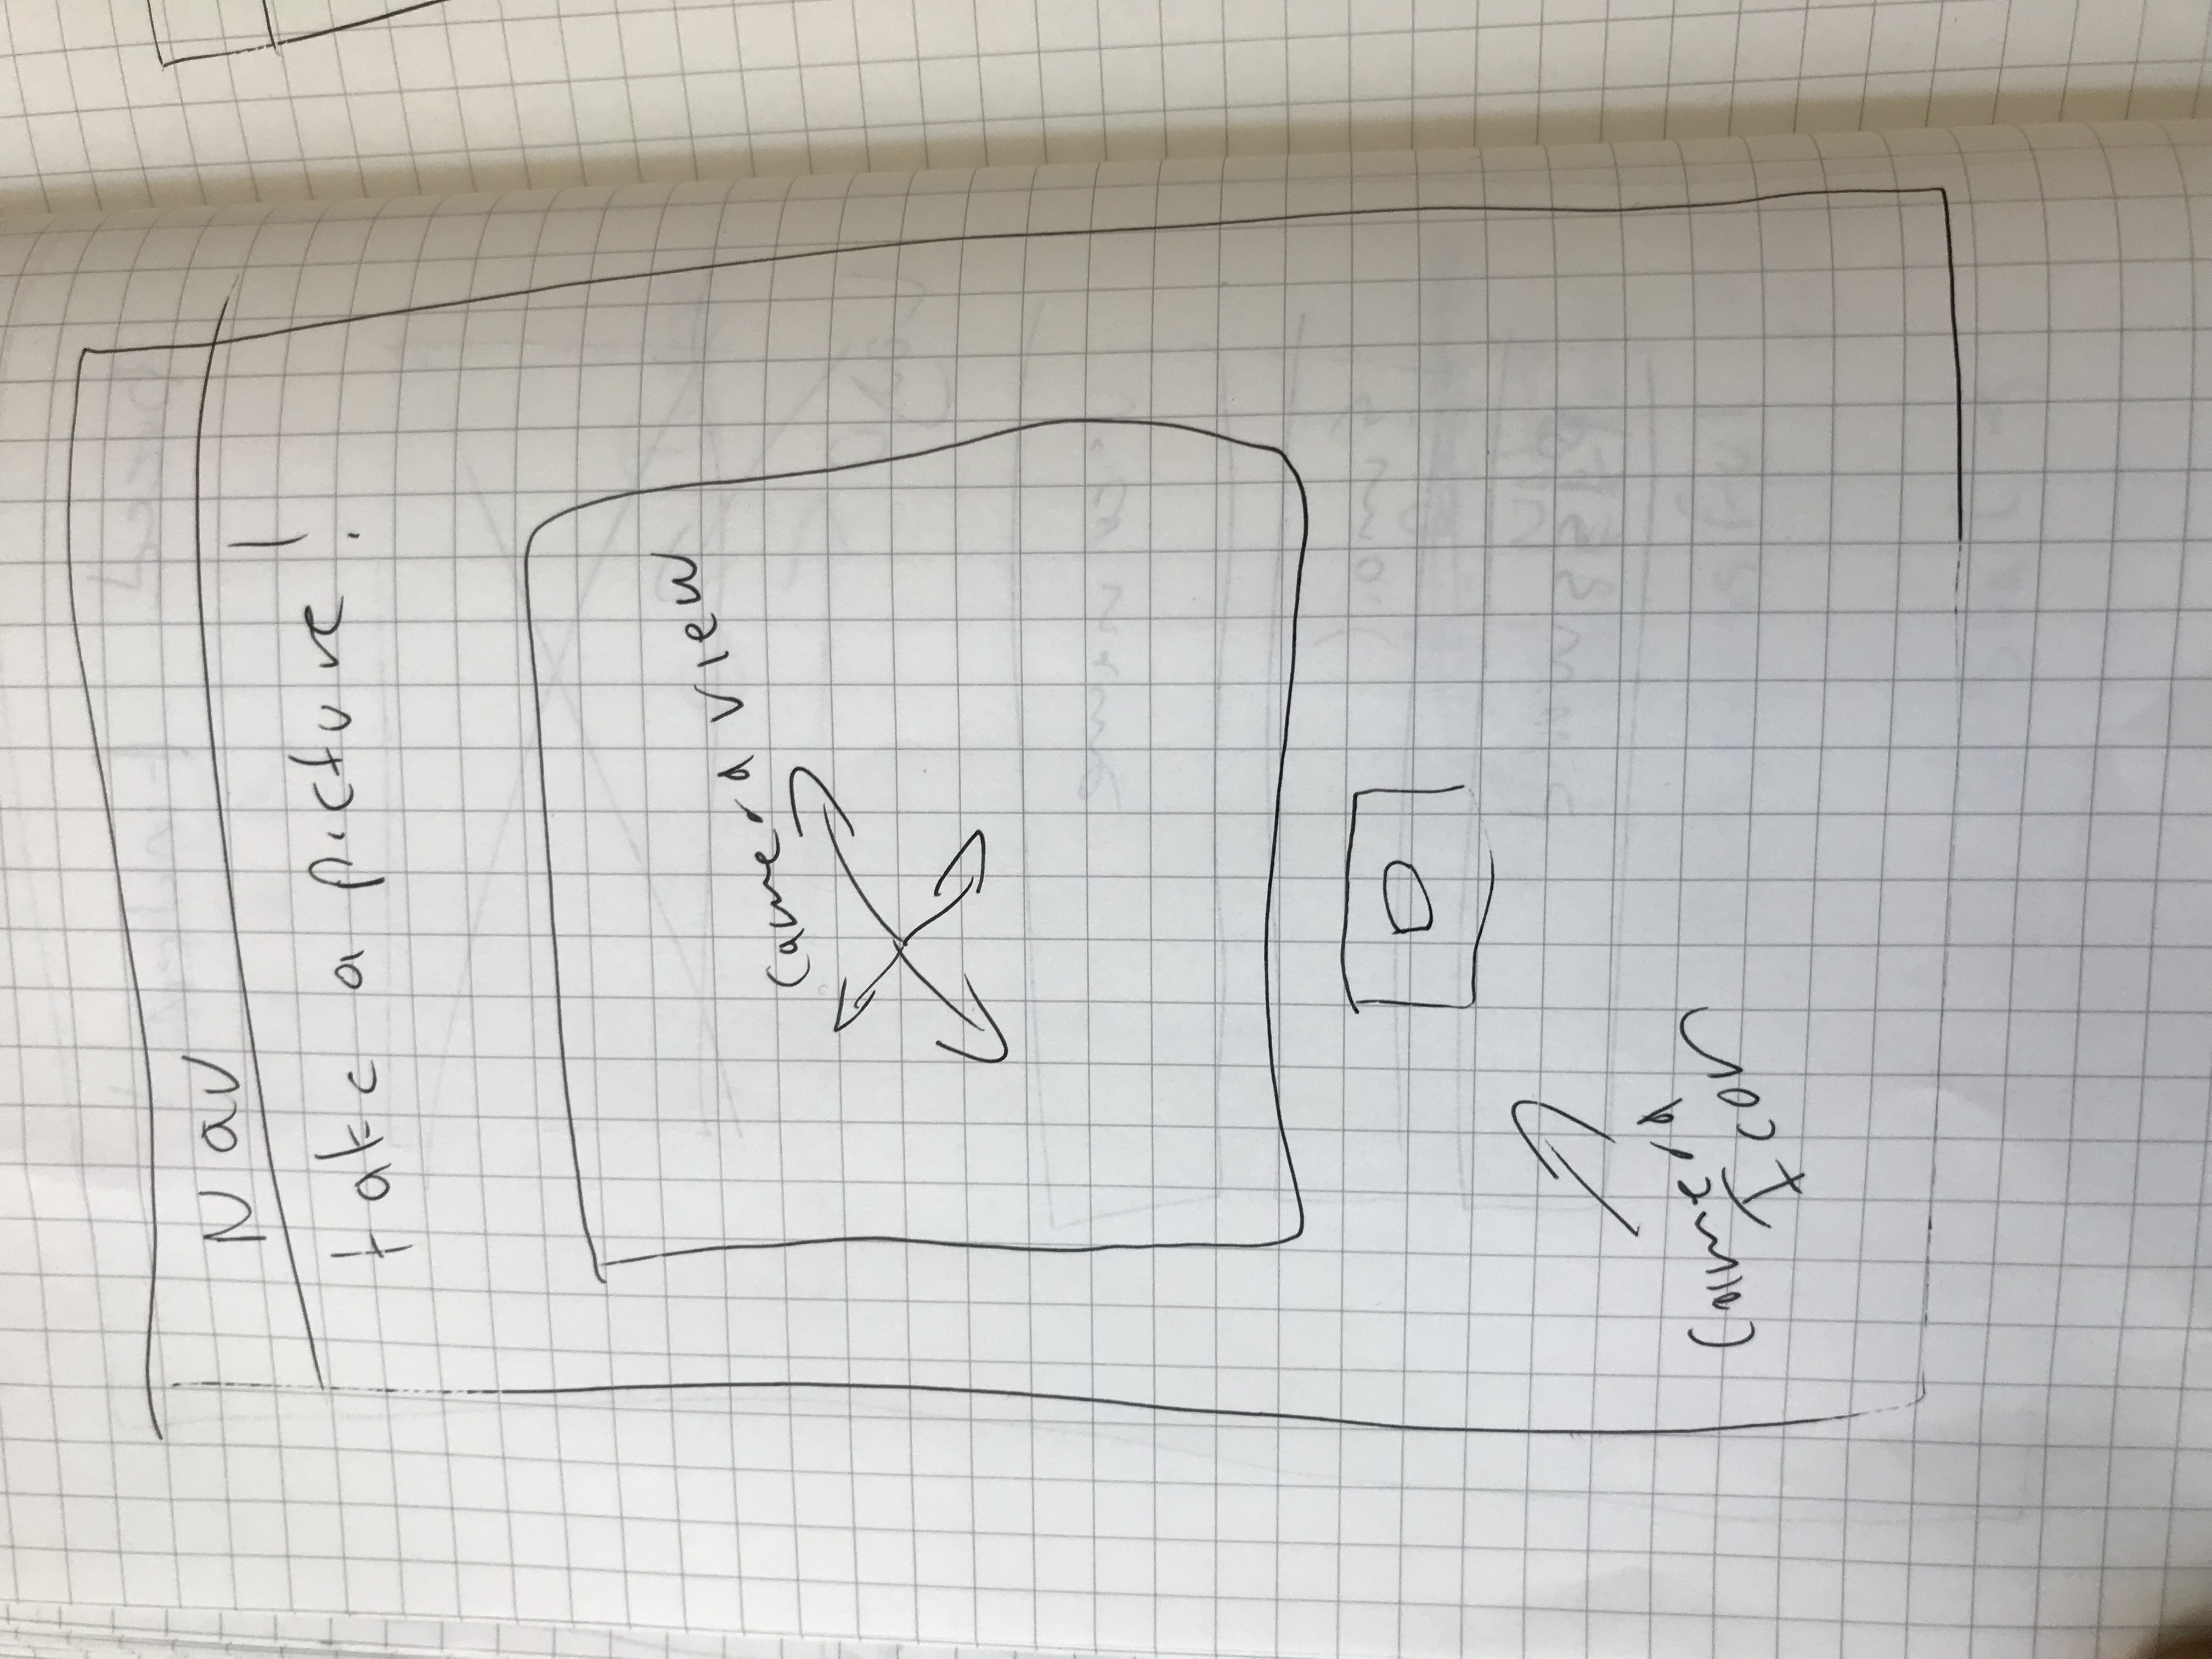 Nav
take a picture!
camera view
Camera
Icon